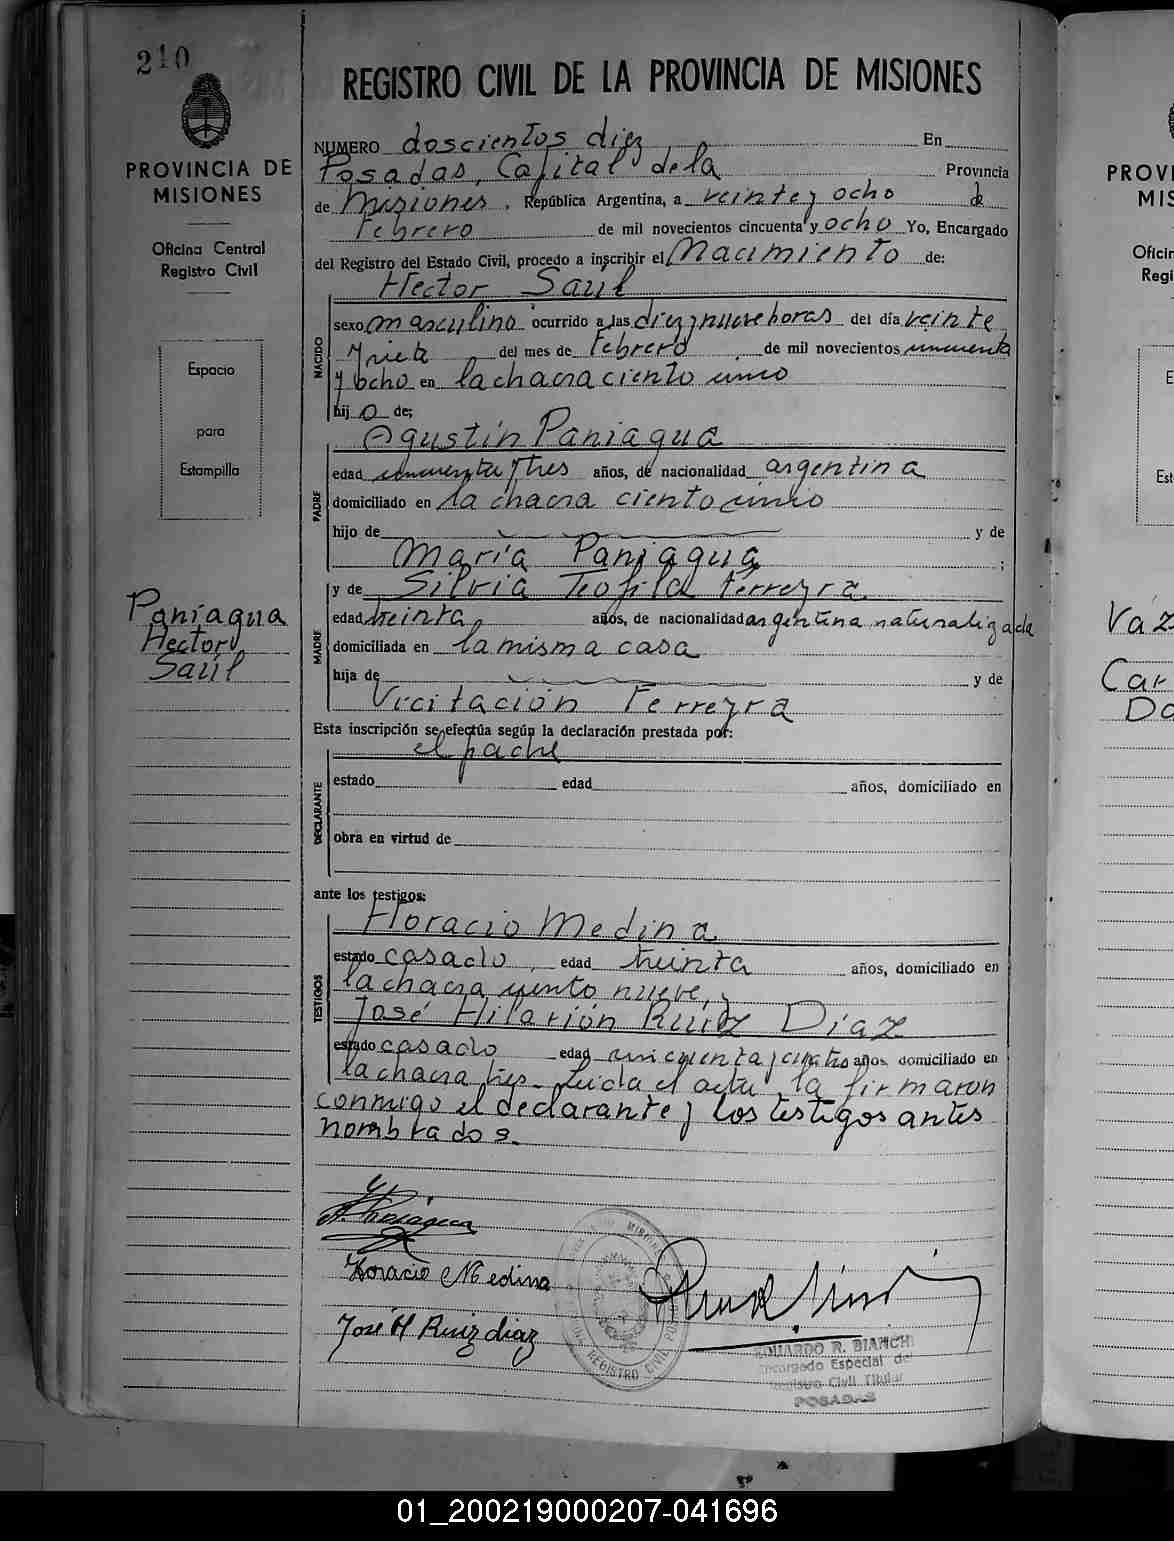 210
PROVINCIA DE
MISIONES
Oficina Central
Registro Civil
Espacio
para
Estampilla
Paniagua
Hector
Saúl
REGISTRO CIVIL DE LA PROVINCIA DE MISIONES
NUMERO doscientos diez En
Posadas, Capital de la Provincia
de Misiones, República Argentina, a veinte y ocho de
Febrero de mil novecientos cincuenta y ocho Yo, Encargado
del Registro del Estado Civil, procedo a inscribir el Nacimiento de:
Hector Saúl
NACIDO
sexo masculino ocurrido a las diez y nueve horas del día veinte
y siete del mes de Febrero de mil novecientos cincuenta
y ocho en la chacra ciento uno
hij o de;
Agustín Paniagua
PADRE
edad cincuenta y tres años, de nacionalidad argentina
domiciliado en la chacra ciento uno
hijo de y de
María Paniagua ;
y de Silvia Teofila Ferreyra
MADRE
edad treinta años, de nacionalidad argentina naturalizada
domiciliada en la misma casa
hija de y de
Vicitación Ferreyra
Esta inscripción se efectúa según la declaración prestada por:
el padre
DECLARANTE
estado edad años, domiciliado en
obra en virtud de
ante los testigos:
Horacio Medina
TESTIGOS
estado casado, edad treinta años, domiciliado en
la chacra ciento nueve, y
José Hilarión Ruiz Díaz
estado casado edad cincuenta y cuatro años, domiciliado en
la chacra tres. Leida el acta la firmaron
conmigo el declarante y los testigos antes
nombrados.
A. Paniagua
Horacio Medina
José H Ruiz diaz
REGISTRO CIVIL
EDUARDO R. BIANCHI
Encargado Especial del
Registro Civil Titular
POSADAS
PROVI
MIS
Oficin
Regi
E
Est
Váz
Car
Do
01_200219000207-041696